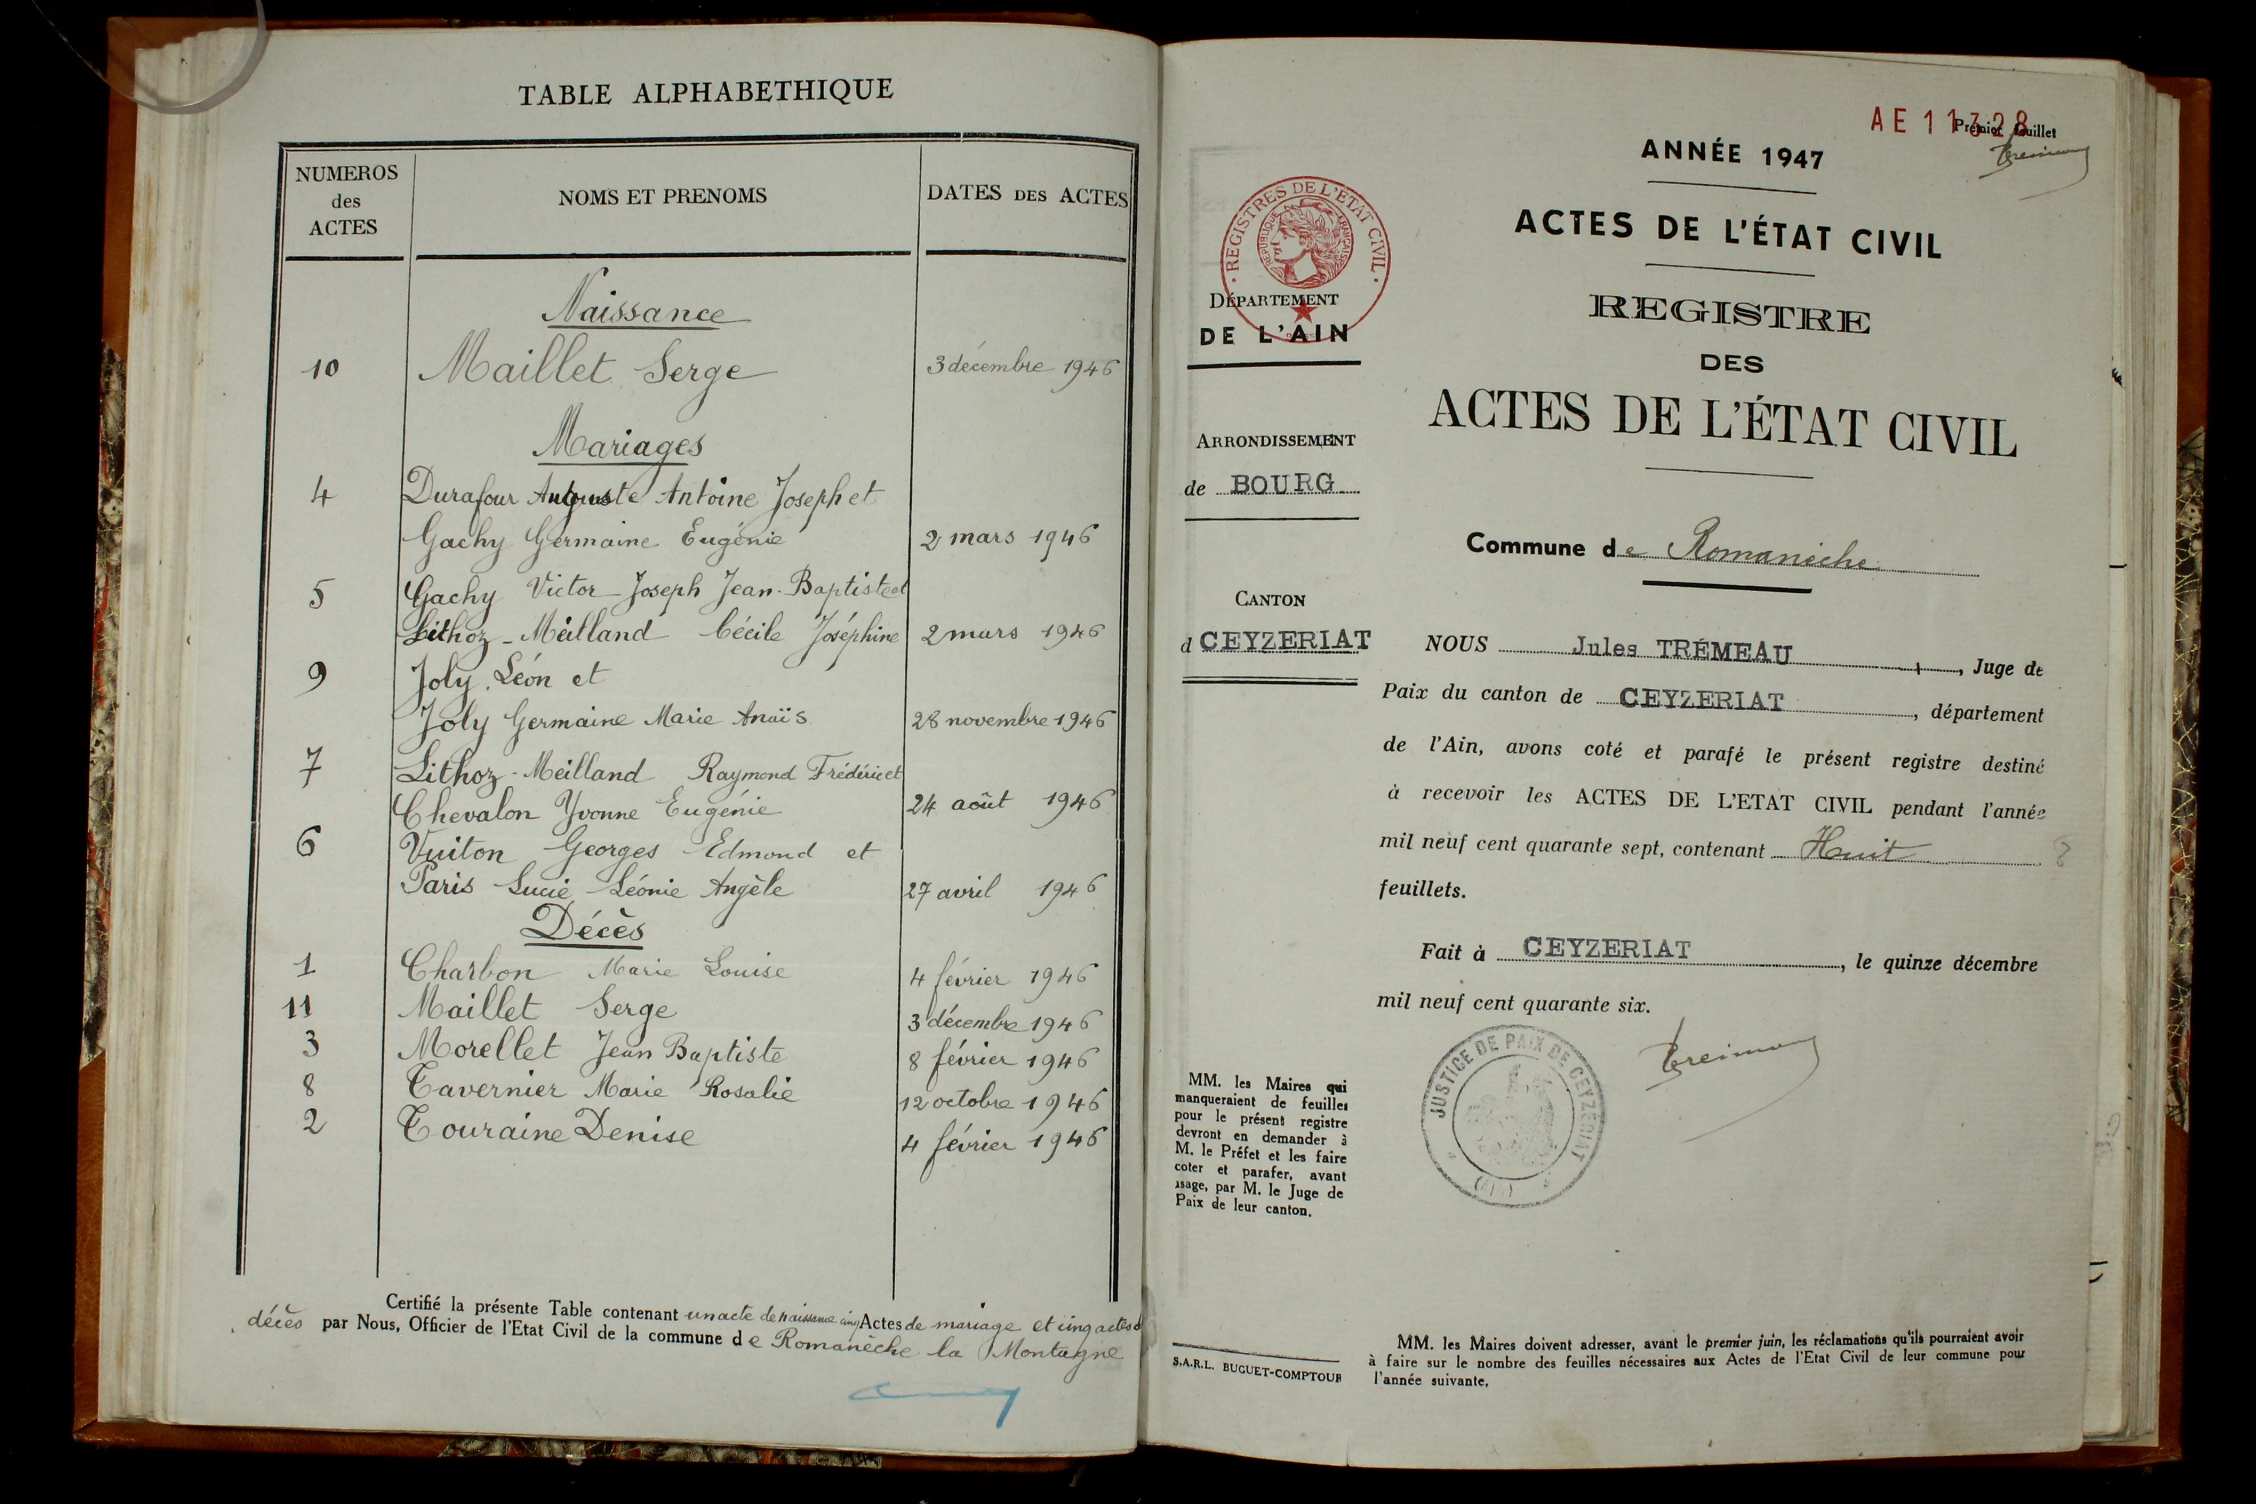 TABLE ALPHABETHIQUE
NUMEROS
des
ACTES
NOMS ET PRENOMS
DATES DES ACTES
Naissance
10 Maillet Serge 3 décembre 1946
Mariages
4 Durafour Auguste Antoine Joseph et
Gachy Germaine Eugénie 2 mars 1946
5 Gachy Victor Joseph Jean-Baptiste et
Lithoz-Meilland Cécile Joséphine 2 mars 1946
9 Joly Léon et
Joly Germaine Marie Anaïs 28 novembre 1946
7 Lithoz-Meilland Raymond Frédéric et
Chevalon Yvonne Eugénie 24 août 1946
6 Vuiton Georges Edmond et
Paris Lucie Léonie Angèle 27 avril 1946
Décès
1 Charbon Marie Louise 4 février 1946
11 Maillet Serge 3 décembre 1946
3 Morellet Jean Baptiste 8 février 1946
8 Tavernier Marie Rosalie 12 octobre 1946
2 Touraine Denise 4 février 1946
Certifié la présente Table contenant un acte de naissance cinq Actes de mariage et cinq actes d
décès par Nous, Officier de l'Etat Civil de la commune de Romanèche la Montagne
AE 11328
Premier feuillet
ANNÉE 1947
ACTES DE L'ÉTAT CIVIL
REGISTRE
DES
ACTES DE L'ÉTAT CIVIL
· REGISTRES DE L'ÉTAT CIVIL ·
RÉPUBLIQUE FRANÇAISE
DÉPARTEMENT
DE L'AIN
ARRONDISSEMENT
de BOURG
CANTON
d CEYZERIAT
Commune de Romanèche
NOUS Jules TRÉMEAU, Juge de
Paix du canton de CEYZERIAT, département
de l'Ain, avons coté et parafé le présent registre destiné
à recevoir les ACTES DE L'ETAT CIVIL pendant l'année
mil neuf cent quarante sept, contenant Huit 8
feuillets.
Fait à CEYZERIAT, le quinze décembre
mil neuf cent quarante six.
JUSTICE DE PAIX DE CEYZERIAT
(AIN)
MM. les Maires qui
manqueraient de feuilles
pour le présent registre
devront en demander à
M. le Préfet et les faire
coter et parafer, avant
usage, par M. le Juge de
Paix de leur canton.
S.A.R.L. BUGUET-COMPTOUR
MM. les Maires doivent adresser, avant le premier juin, les réclamations qu'ils pourraient avoir
à faire sur le nombre des feuilles nécessaires aux Actes de l'Etat Civil de leur commune pour
l'année suivante.